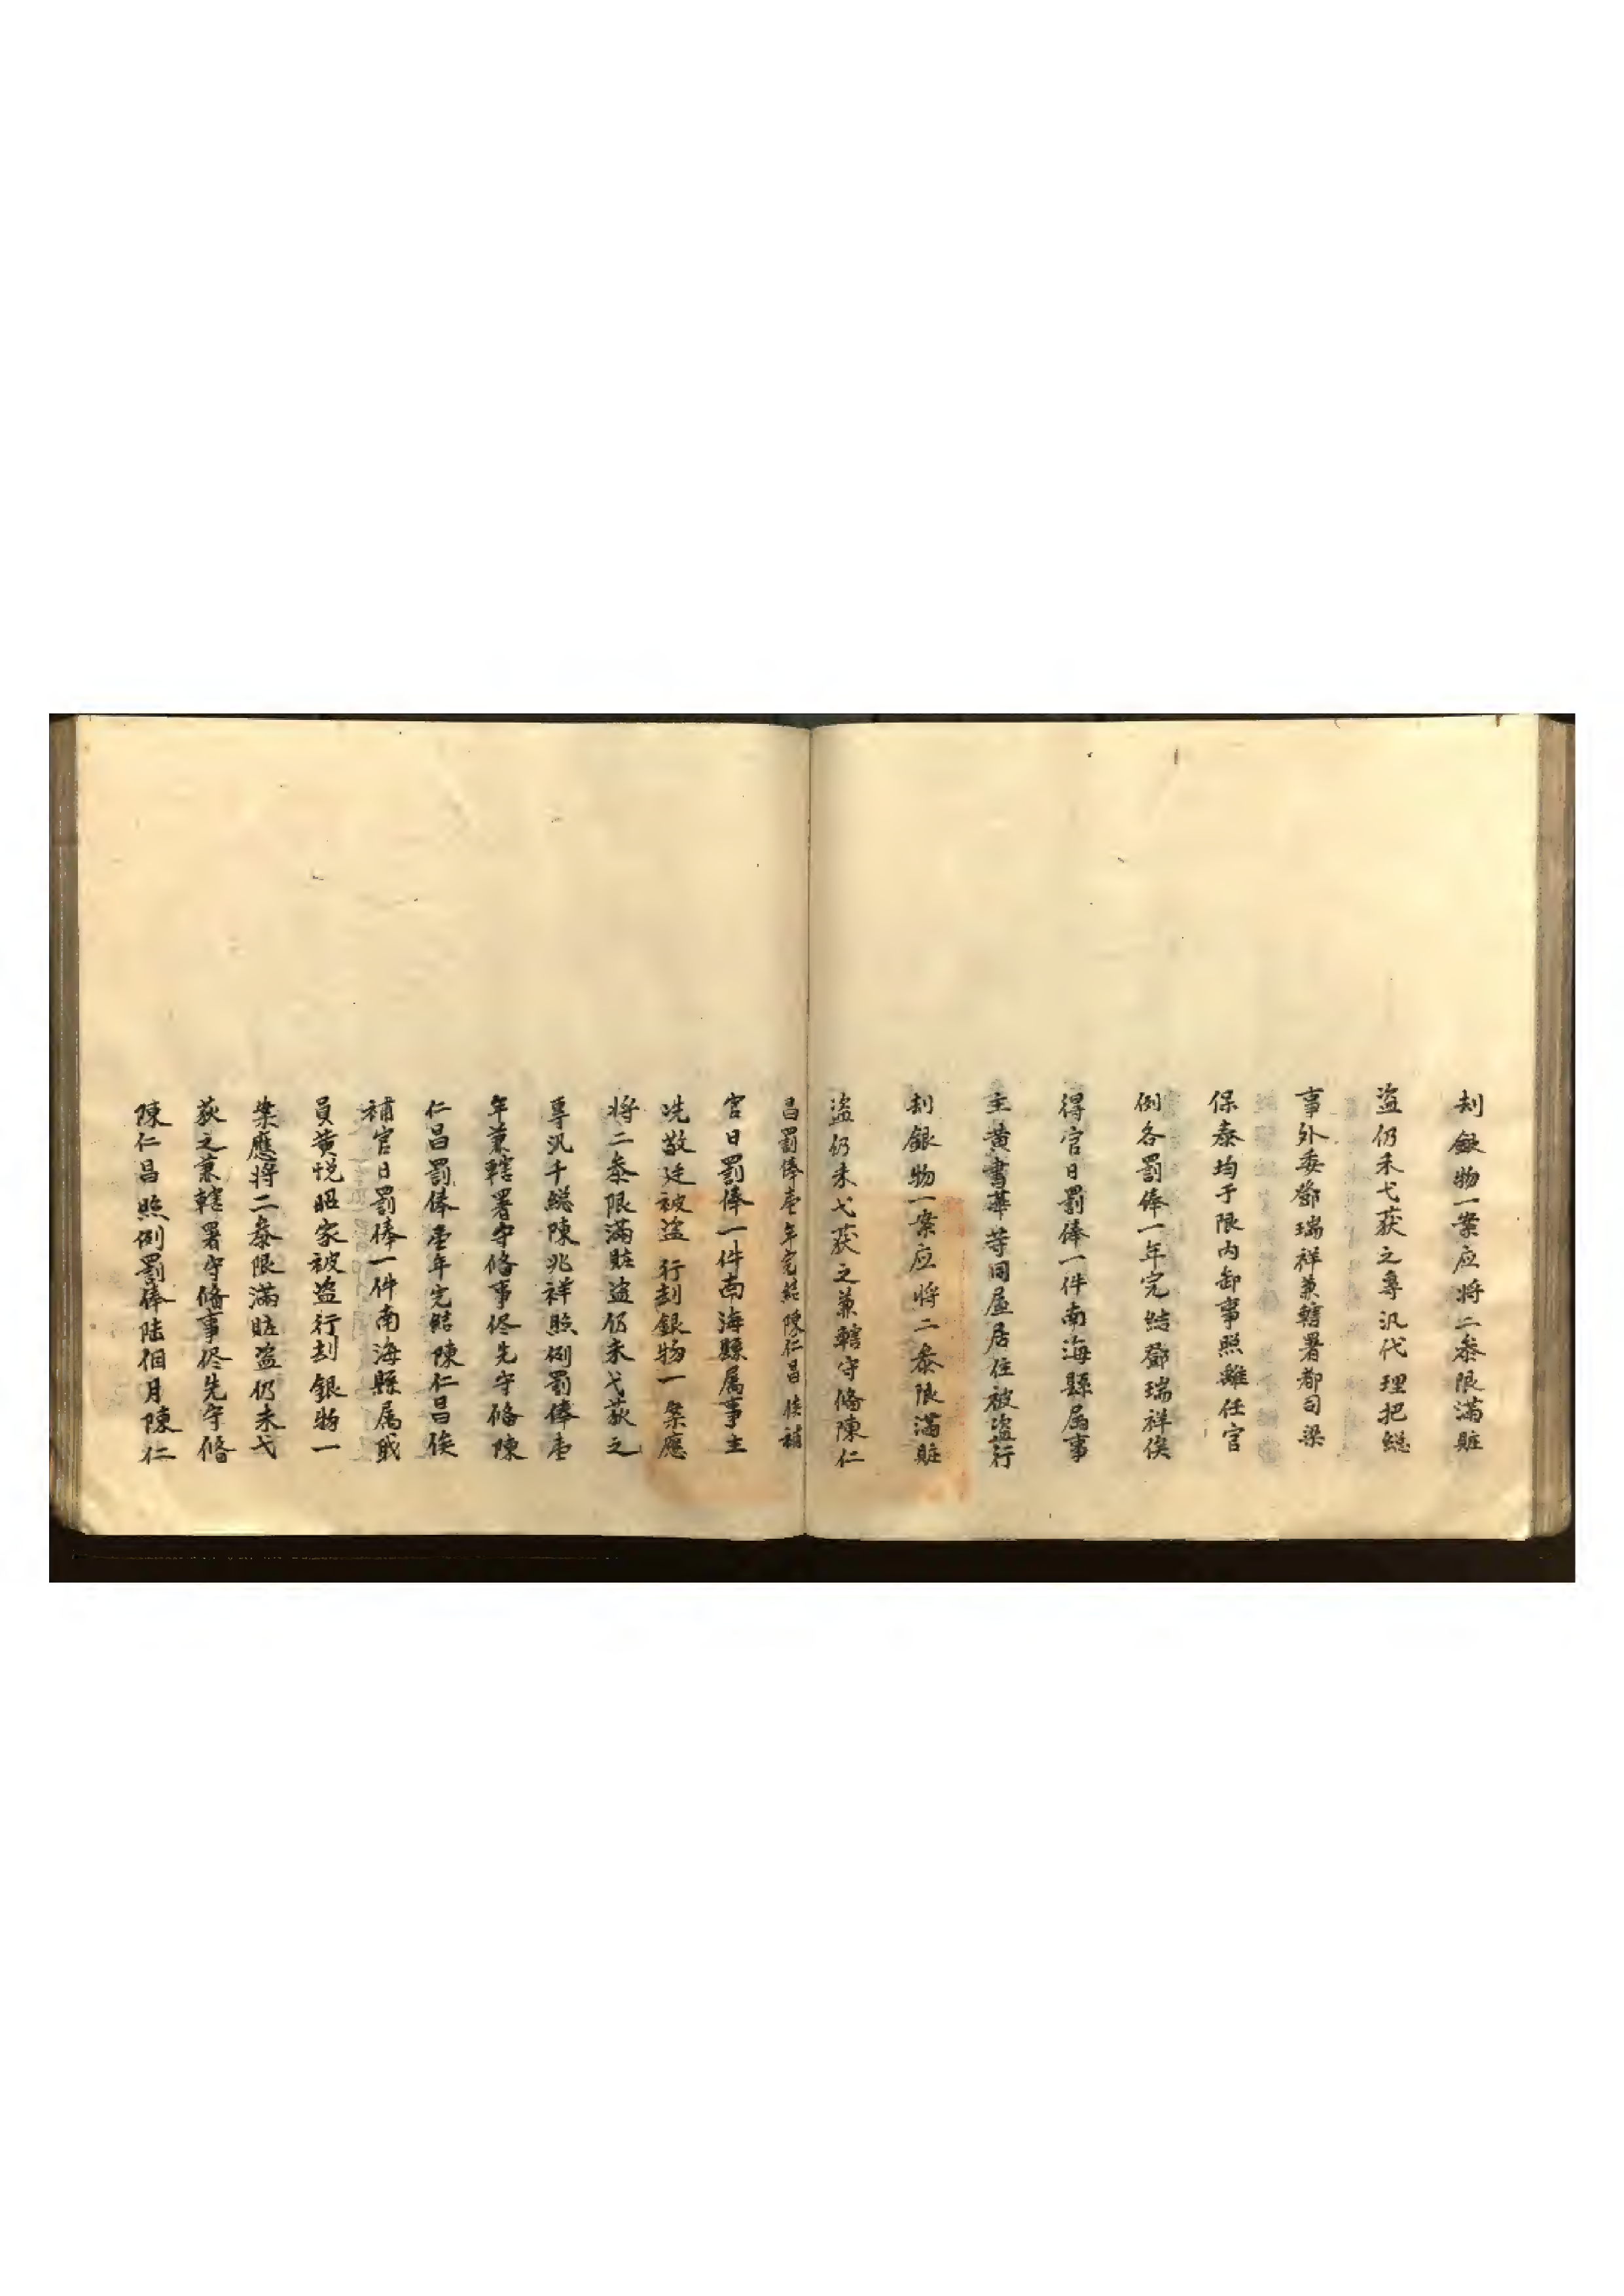 刦銀物一案应将二叅限滿賍
盗仍未弋获之專汛代理把総
事外委鄧瑞祥兼轄署都司梁
保泰均于限内卸事照離任官
例各罰俸一年完結鄧瑞祥俟
得官日罰俸一件南海縣属事
主黄書華等同屋居住被盗行
刦銀物一案应将二叅限滿賍
盗仍未弋获之兼轄守俻陳仁
昌罰俸壹年完結陳仁昌俟補
官日罰俸一件南海縣属事主
冼敬廷被盗行刦銀物一案應
将二叅限滿賍盗仍未弋获之
專汛千総陳兆祥照例罰俸壹
年兼轄署守俻事侭先守俻陳
仁昌罰俸壹年完結陳仁昌俟
補官日罰俸一件南海縣属戝
員黄悦昭家被盗行刦銀物一
案應将二叅限滿賍盗仍未弋
获之兼轄署守俻事侭先守俻
陳仁昌照例罰俸陆個月陳仁